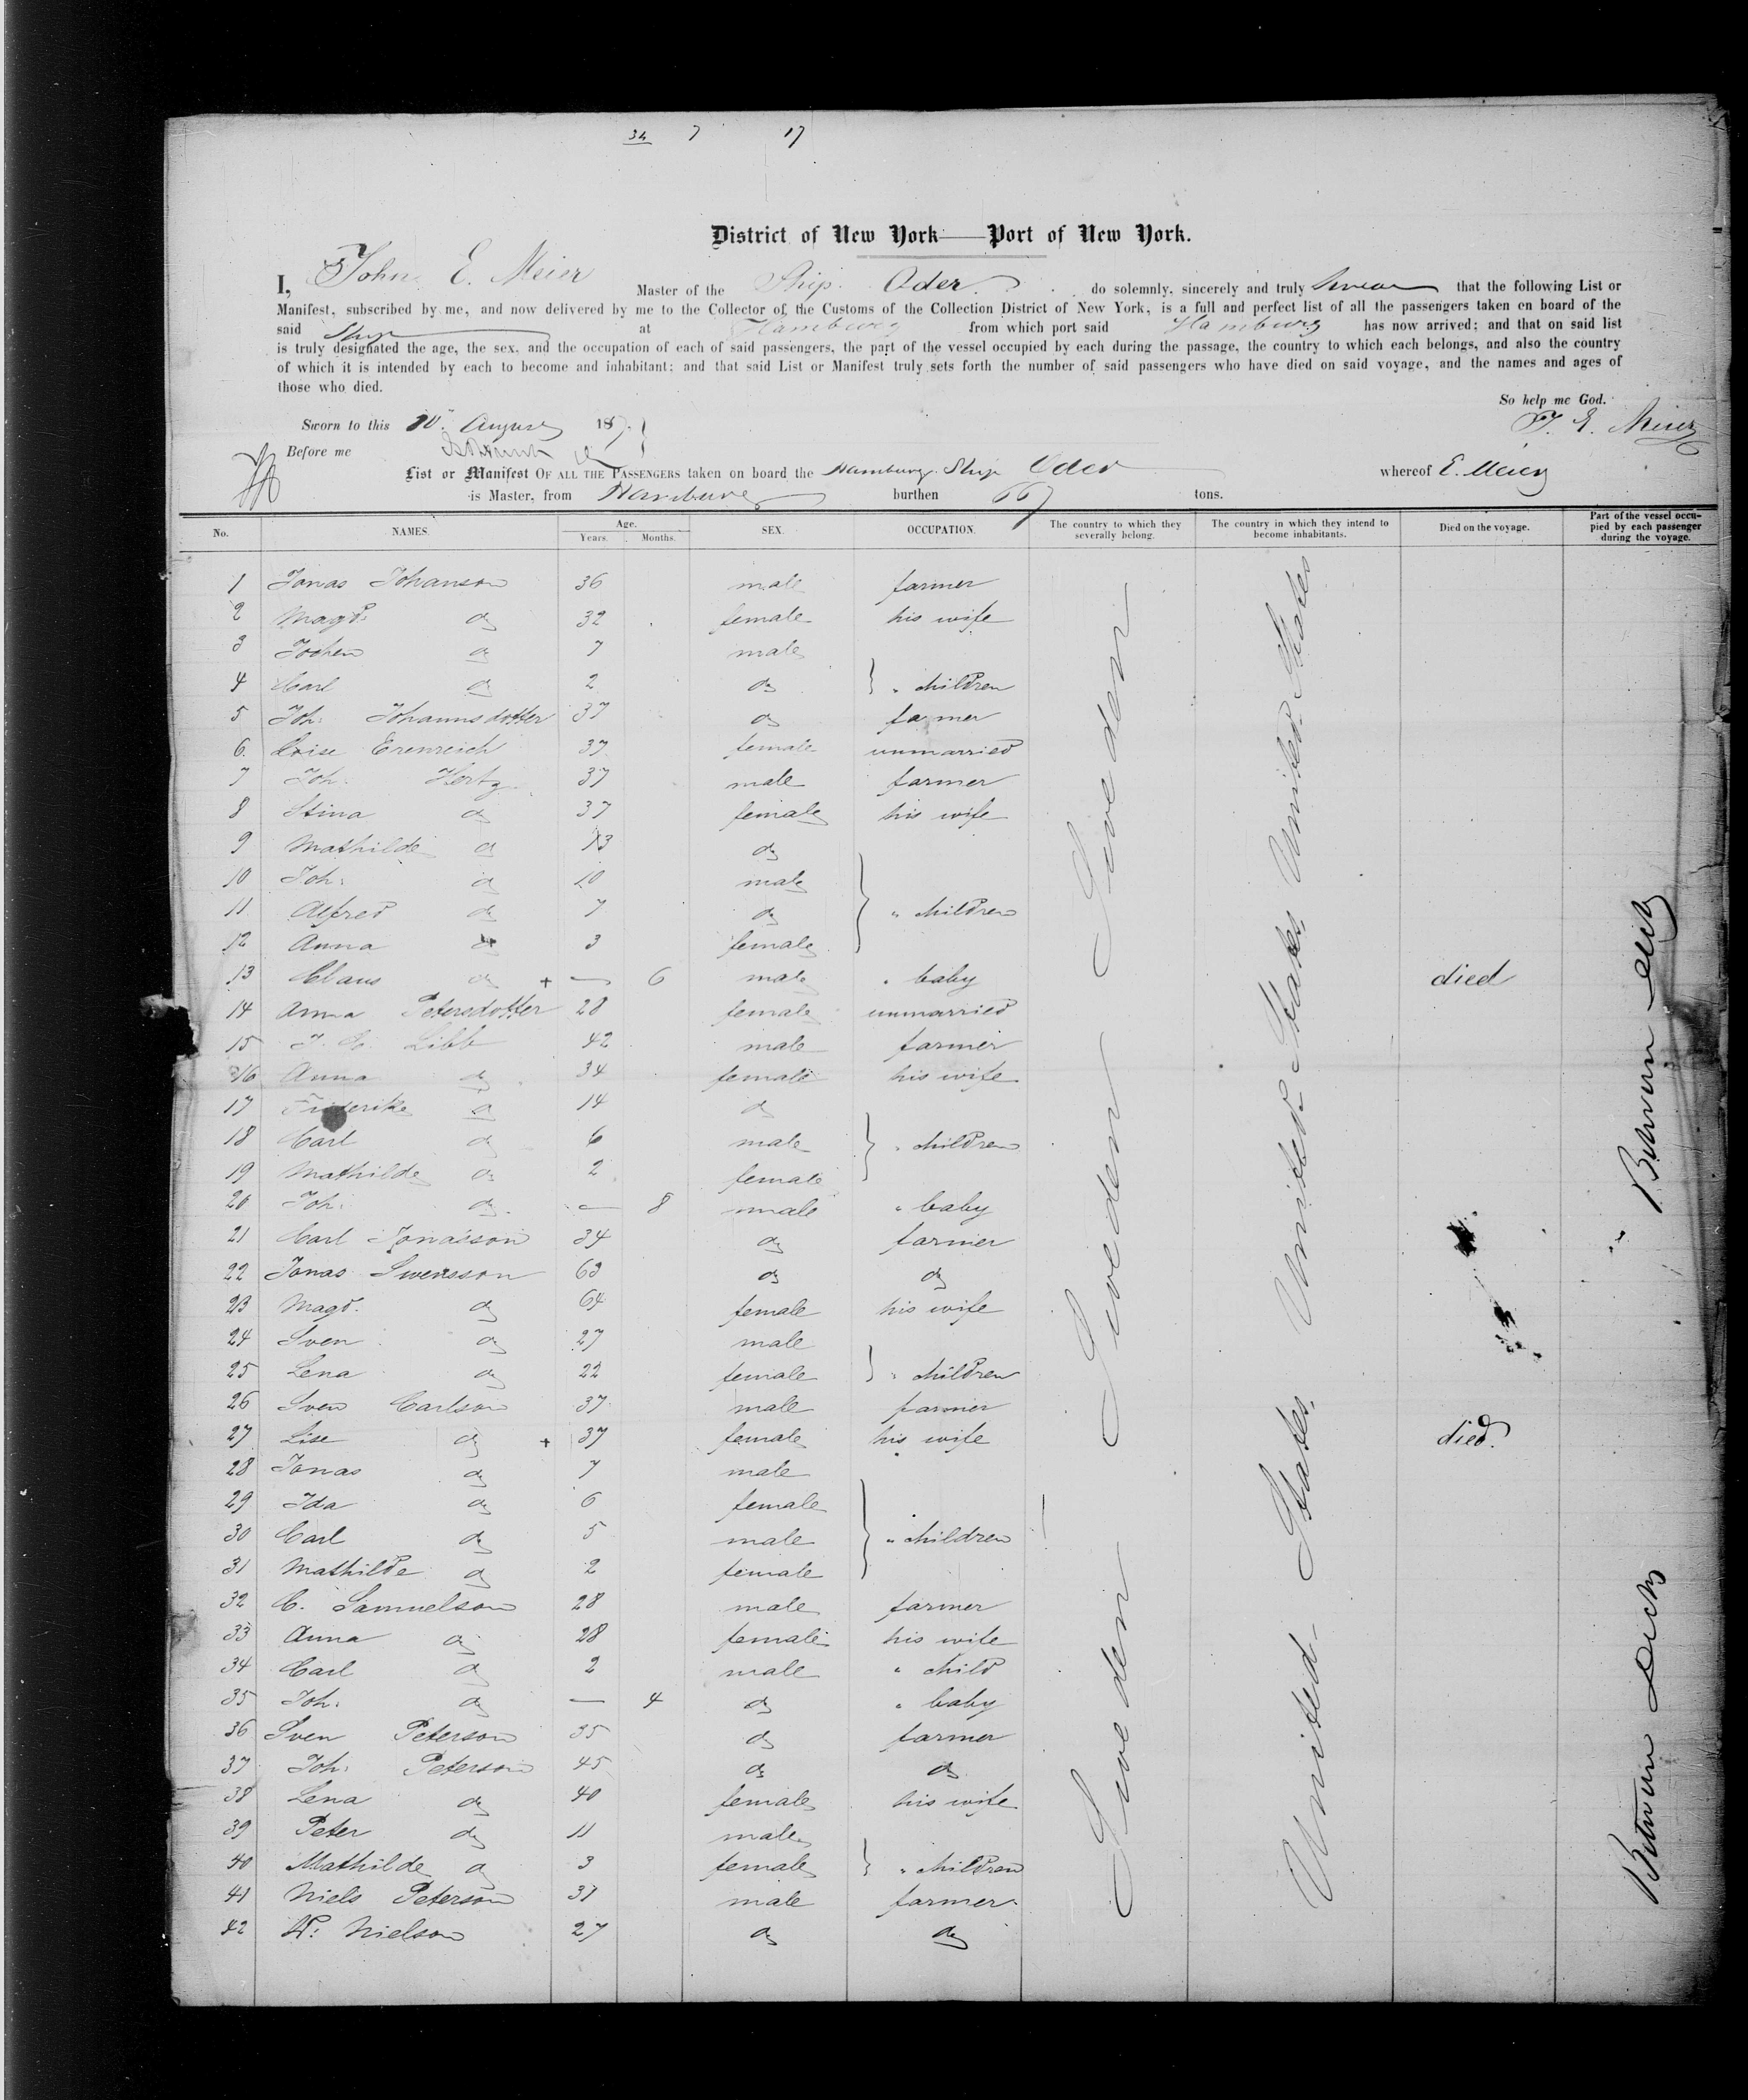 34 7 17
District of New York——Port of New York.
I, John E. Meier Master of the Ship Oder do solemnly, sincerely and truly swear that the following List or
Manifest, subscribed by me, and now delivered by me to the Collector of the Customs of the Collection District of New York, is a full and perfect list of all the passengers taken on board of the
said Ship at Hamburg from which port said Hamburg has now arrived; and that on said list
is truly designated the age, the sex, and the occupation of each of said passengers, the part of the vessel occupied by each during the passage, the country to which each belongs, and also the country
of which it is intended by each to become and inhabitant; and that said List or Manifest truly sets forth the number of said passengers who have died on said voyage, and the names and ages of
those who died.
So help me God.
Sworn to this 10. August 18 J. E. Meier
Before me
List or Manifest OF ALL THE PASSENGERS taken on board the Hamburg. Ship Oder whereof E. Meier
is Master, from Hamburg burthen 667 tons.
No. NAMES. Age. Years. Months. SEX. OCCUPATION. The country to which they severally belong. The country in which they intend to become inhabitants. Died on the voyage. Part of the vessel occupied by each passenger during the voyage.
1 Jonas Johanson 36 male farmer
2 Magd. do 32 female his wife
3 Jochen do 7 male
4 Carl do 2 do } " children
5 Joh. Johannsdotter 37 do farmer
6. Lise Erenreich 37 female unmarried
7 Joh. Hertz 37 male farmer
8 Stina do 37 female his wife
9 Mathilde do 13 do
10 Joh. do 10 male
11 Alfred do 7 do } " children
12 Anna do 3 female
13 Claus do + — 6 male " baby died
14 Anna Petersdotter 28 female unmarried
15 J. C. Libb 42 male farmer
16 Anna do 34 female his wife
17 Friderike do 14 do
18 Carl do 6 male } " children
19 Mathilde do 2 female
20 Joh. do — 8 male " baby
21 Carl Jonasson 34 do farmer
22 Jonas Swensson 63 do do
23 Magd. do 64 female his wife
24 Sven do 27 male
25 Lena do 22 female } " children
26 Sven Carlson 37 male farmer
27 Lise do + 37 female his wife died.
28 Jonas do 7 male
29 Ida do 6 female
30 Carl do 5 male } " children
31 Mathilde do 2 female
32 C. Samuelson 28 male farmer
33 Anna do 28 female his wife
34 Carl do 2 male " child
35 Joh. do — 4 do " baby
36 Sven Peterson 35 do farmer
37 Joh. Peterson 45 do do
38 Lena do 40 female his wife
39 Peter do 11 male
40 Mathilde do 3 female } " children
41 Niels Peterson 31 male farmer
42 Nielson 27 do do
Sweden Sweden Sweden Sweden
United States United States United States
Between deck Between deck